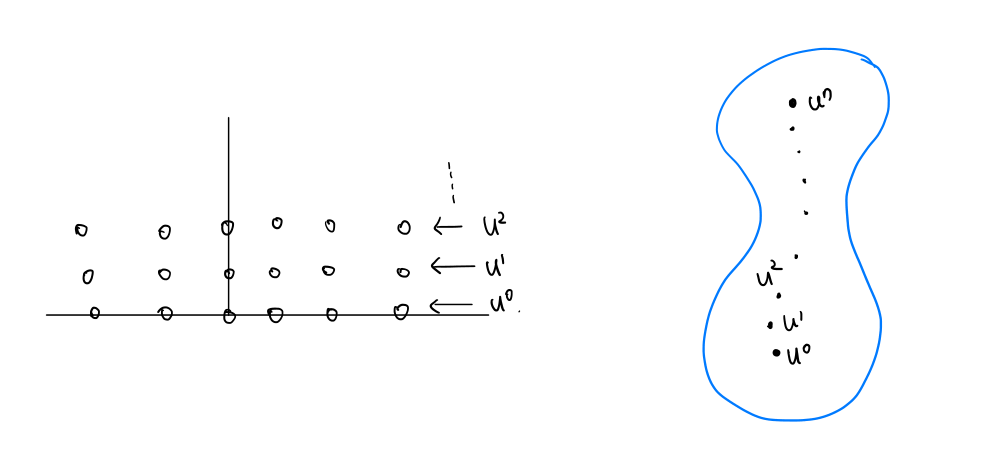 u²
u¹
u⁰.
uⁿ
u²
u¹
u⁰